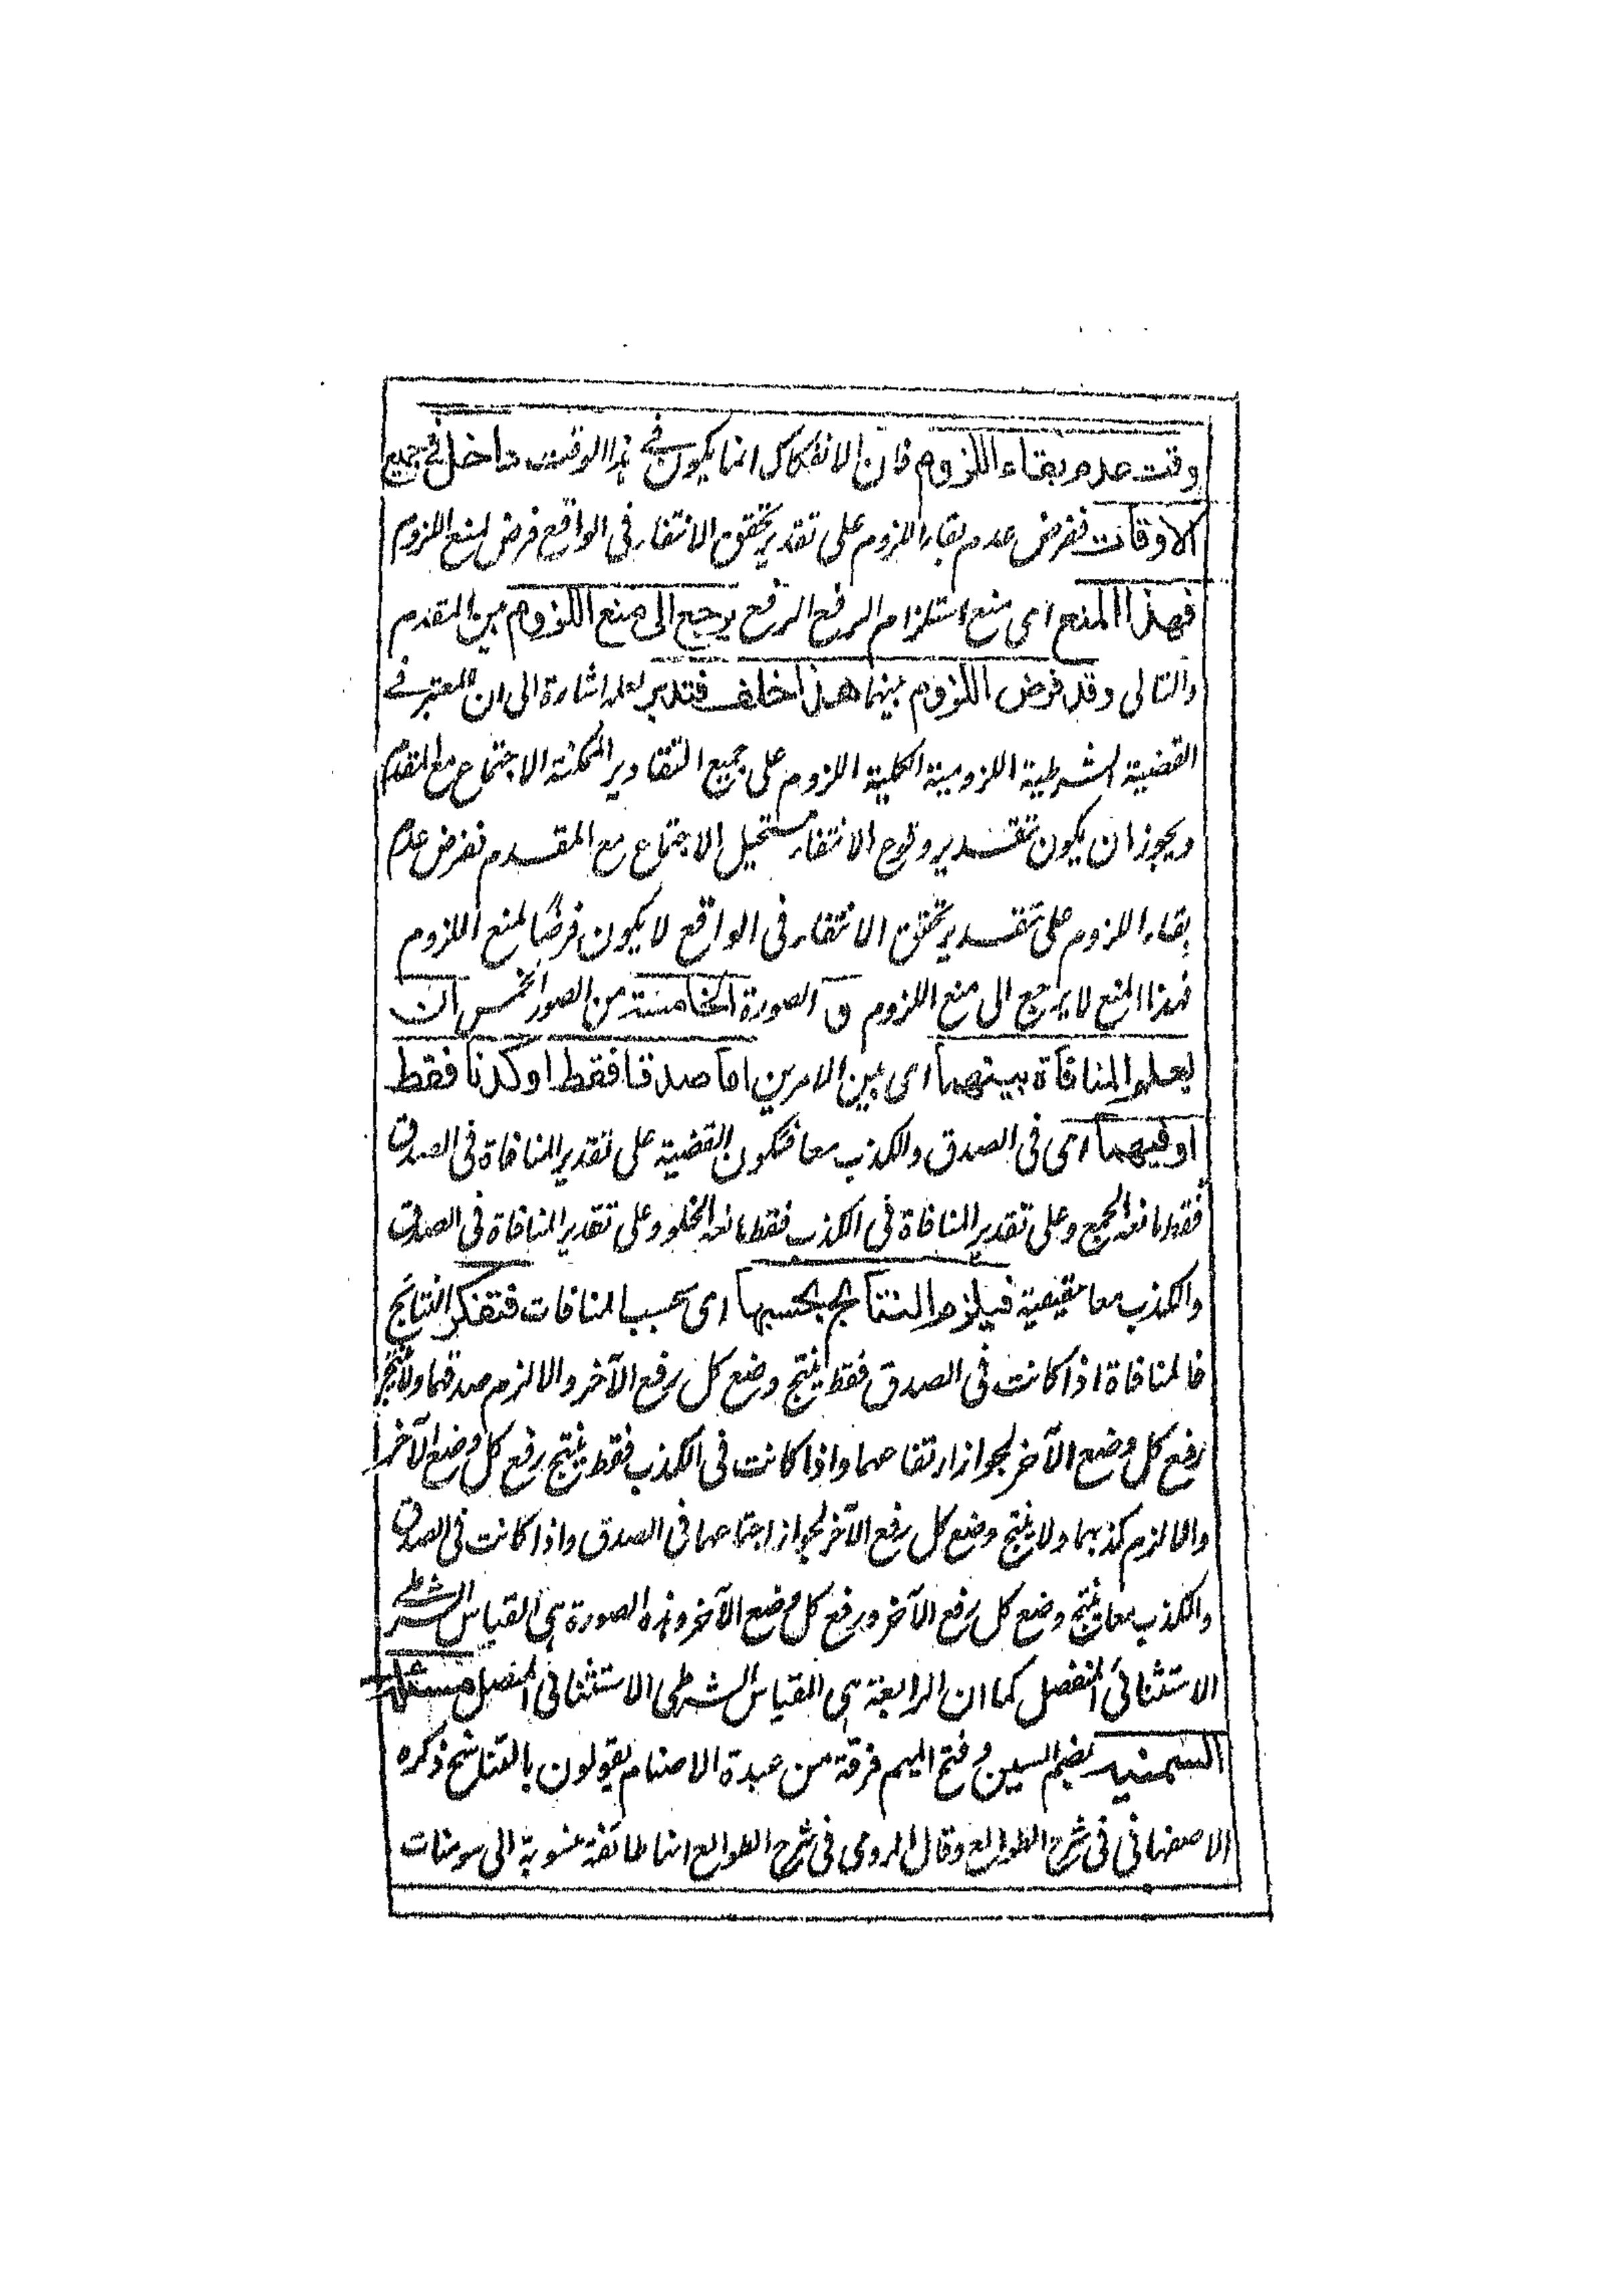 وقت عدم بقاء اللزوم فان الانفكاك انما يكون فى هذا الوقت داخل فى جميع
الاوقات ففرض عدم بقاء اللزوم على تقدير تحقق الانتفاء فى الواقع فرض لمنع اللزوم
فهذا المنع اى منع استلزام الرفع الرفع يرجع الى منع اللزوم بين المقدم
والتالى وقد فرض اللزوم بينهما هذا خلف فتدبر لعله اشارة الى ان المعتبر فى
القضية الشرطية اللزومية الكلية اللزوم على جميع التقادير الممكنة الاجتماع مع المقدم
ويجوز ان يكون تقدير وقوع الانتفاء مستحيل الاجتماع مع المقدم ففرض عدم
بقاء اللزوم على تقدير تحقق الانتفاء فى الواقع لا يكون فرضًا لمنع اللزوم
فهذا المنع لا يرجع الى منع اللزوم و الصورة الخامسة من الصور الخمس ان
يعلم المنافاة بينهما اى بين الامرين اما صدقا فقط او كذبا فقط
او فيهما اى فى الصدق والكذب معا فتكون القضية على تقدير المنافاة فى الصدق
فقط مانعة الجمع وعلى تقدير المنافاة فى الكذب فقط مانعة الخلو وعلى تقدير المنافاة فى الصدق
والكذب معا حقيقية فيلزم النتائج بحسبها اى بحسب المنافات فتفكر النتائج
فالمنافاة اذا كانت فى الصدق فقط ينتج وضع كل رفع الآخر والا لزم صدقهما ولا ينتج
رفع كل وضع الآخر لجواز ارتفاعهما واذا كانت فى الكذب فقط ينتج رفع كل وضع الآخر
والا لزم كذبهما ولا ينتج وضع كل رفع الآخر لجواز اجتماعهما فى الصدق واذا كانت فى الصدق
والكذب معا ينتج وضع كل رفع الآخر ورفع كل وضع الآخر وهذه الصورة هى القياس الشرطى
الاستثنائى المنفصل كما ان الرابعة هى القياس الشرطى الاستثنائى المتصل مسئلة
السمنية بضم السين وفتح الميم فرقة من عبدة الاصنام يقولون بالتناسخ ذكره
الاصفهانى فى شرح الطوالع وقال الرومى فى شرح الطوالع انها طائفة منسوبة الى سومنات